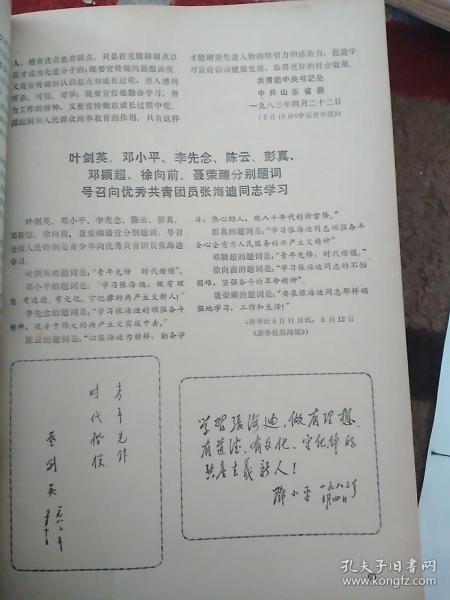 人，她有优点也有弱点，只是在克服掉弱点以
后才成为先进分子的；既要宣传她的思想高度，
又要宣传她的认识起点和成长过程，使人感到
可亲、可信、可学；既要宣传她勤奋学习、努
力工作的精神，又要宣传她在成长过程中党、
团组织和人民群众培养教育的作用。只有这样
才能增强先进人物的吸引力和感染力，促进学
习宣传活动健康发展，取得更好的社会效果。
共青团中央书记处
中共山东省委
一九八三年四月二十二日
（5月10日《中国青年报》）
叶剑英、邓小平、李先念、陈云、彭真、
邓颖超、徐向前、聂荣臻分别题词
号召向优秀共青团员张海迪同志学习
叶剑英、邓小平、李先念、陈云、彭真、
邓颖超、徐向前、聂荣臻最近分别题词，号召
全国人民特别是青少年向优秀共青团员张海迪
学习。
叶剑英的题词是：“青年先锋 时代楷模”。
邓小平的题词是：“学习张海迪，做有理
想、有道德、有文化、守纪律的共产主义新人！”
李先念的题词是：“学习张海迪的顽强奋斗
精神，献身于伟大的共产主义实践中去。”
陈云的题词是：“以张海迪为榜样，勤奋学
习，热心助人，做八十年代的新雷锋。”
彭真的题词是：“学习张海迪同志顽强奋斗
全心全意为人民服务的共产主义精神”
邓颖超的题词是：“青年先锋，时代楷模。”
徐向前的题词是：“学习张海迪同志的不怕
困难，坚强奋斗的革命精神”。
聂荣臻的题词是：“要象张海迪同志那样顽
强地学习，工作和生活！”
（新华社5月11日讯，5月12日
《新华社新闻稿》）
青年先锋
时代楷模
叶剑英
一九八三年
学习张海迪，做有理想、
有道德、有文化、守纪律的
共产主义新人！
邓小平
一九八三年
五月四日
61
孔夫子旧书网
book.kongfz.com